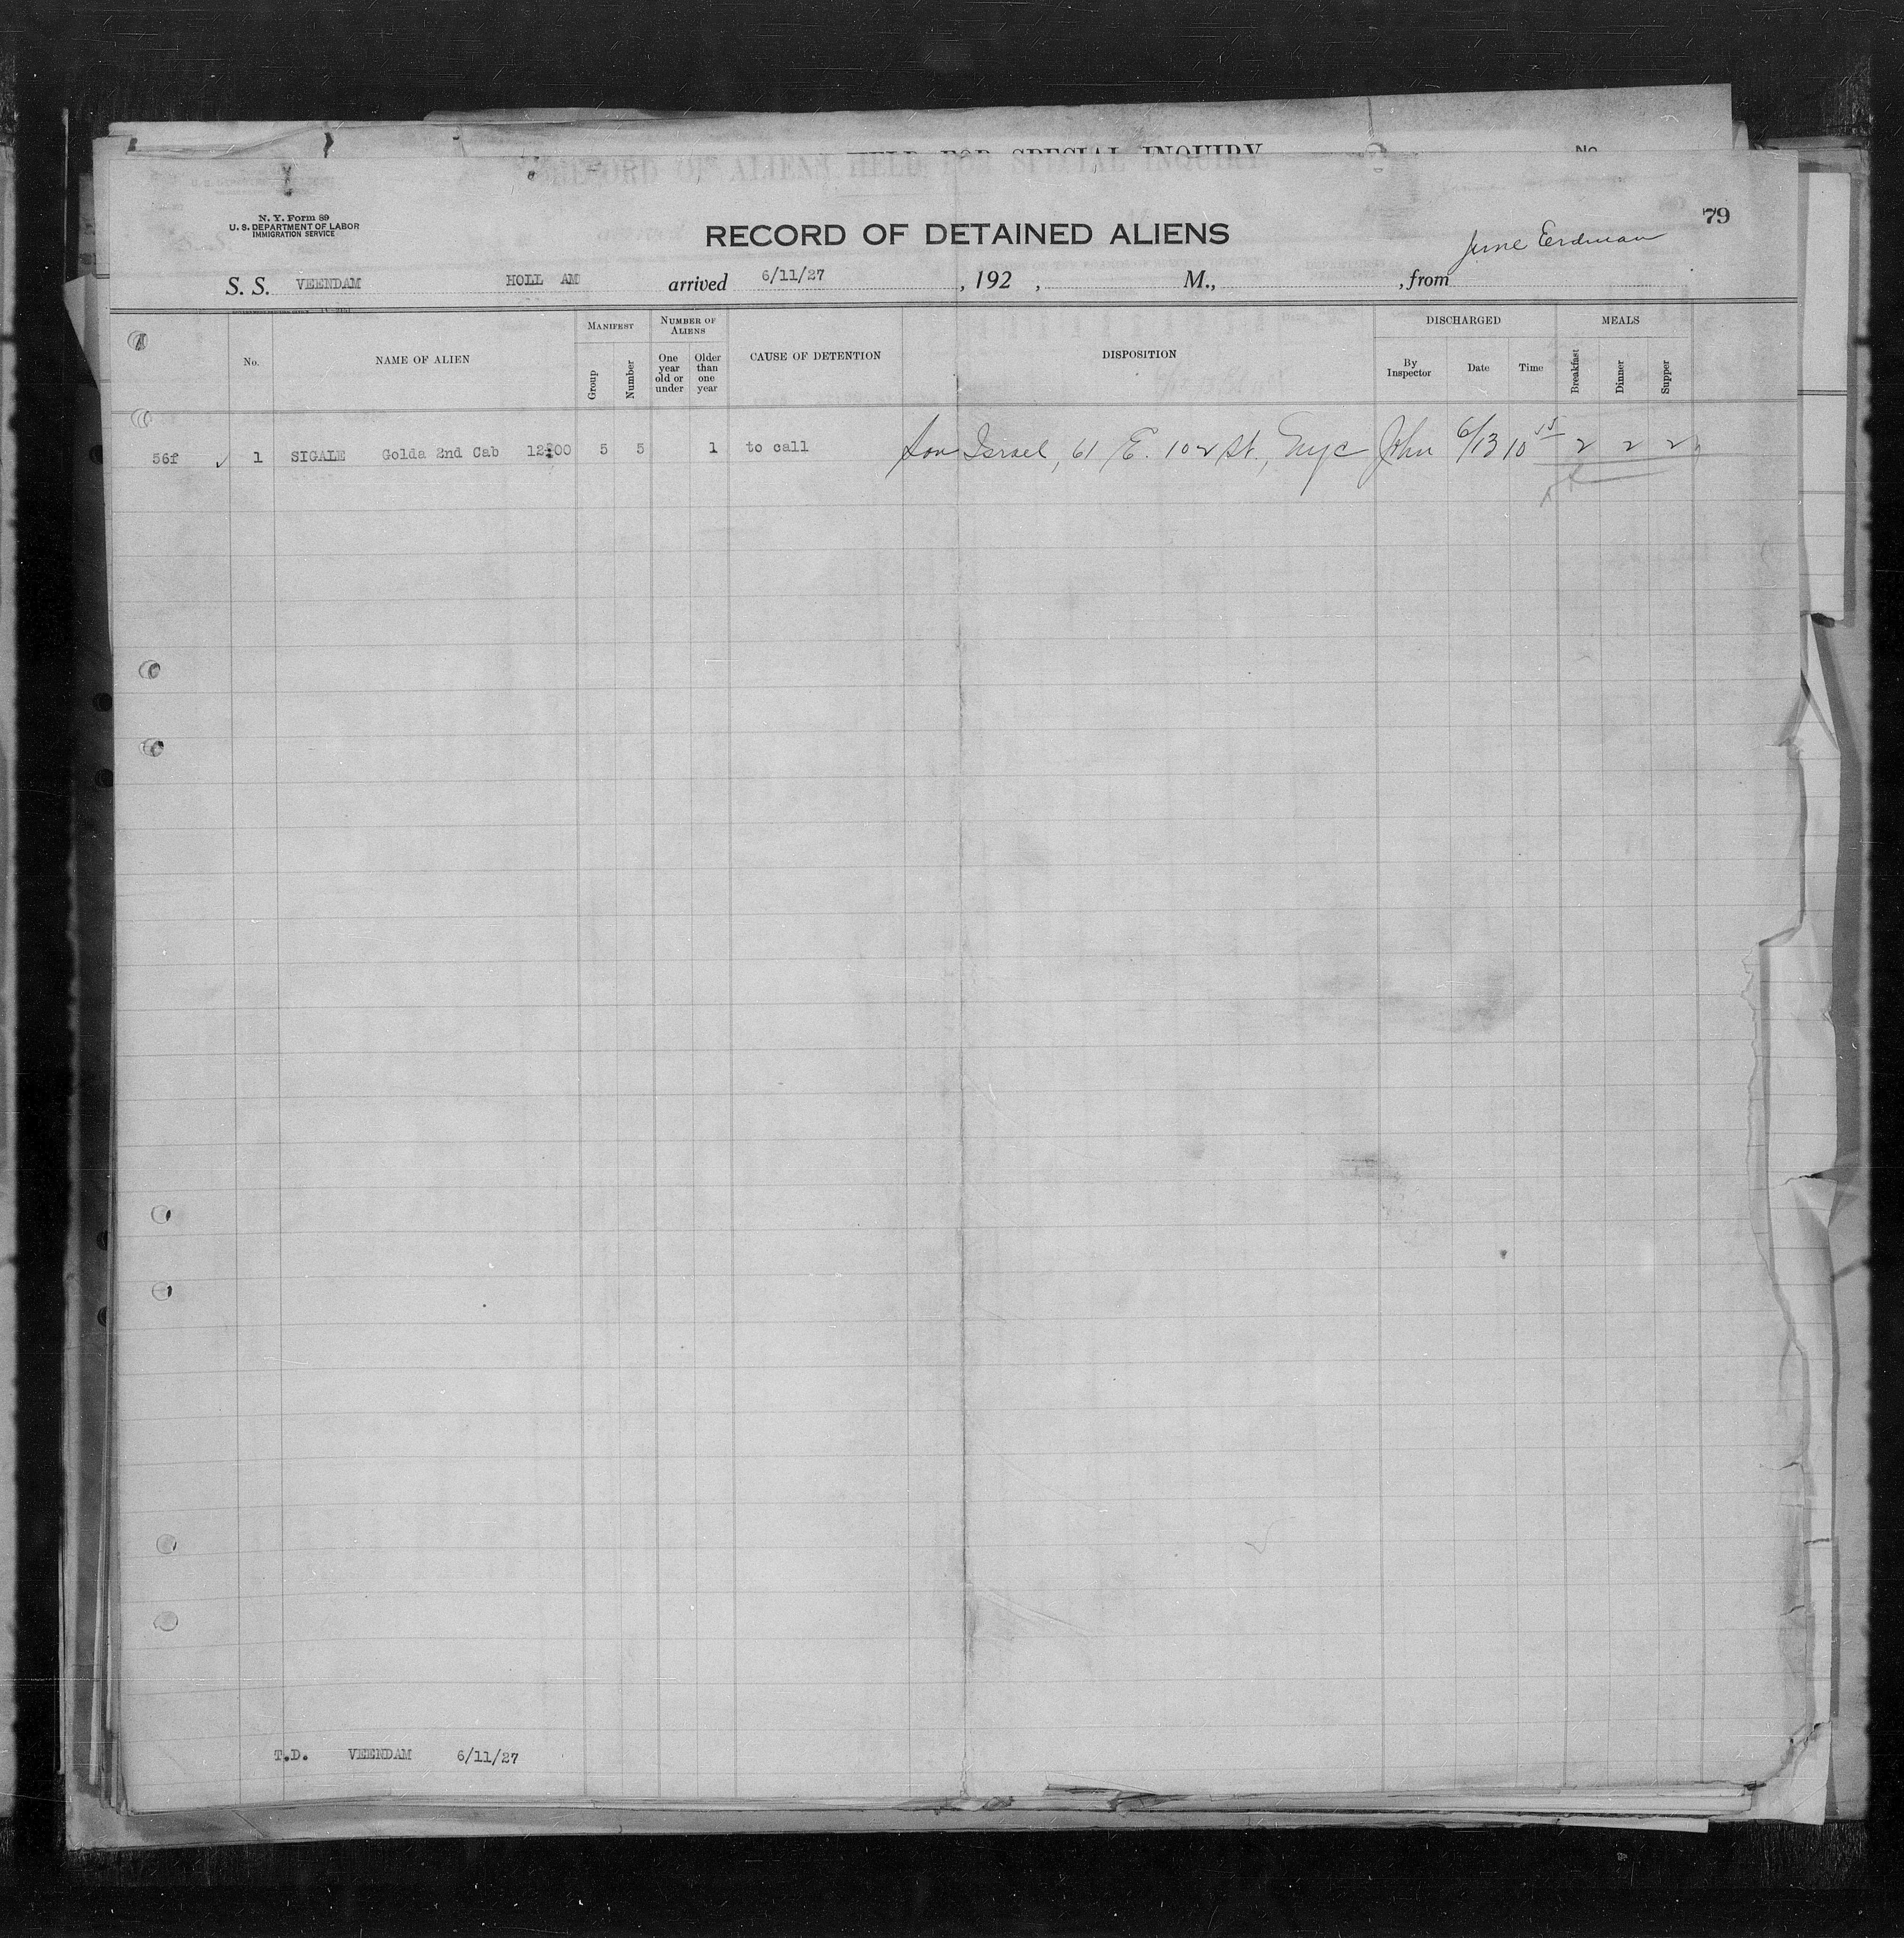 HELD FOR SPECIAL INQUIRY No.
RECORD OF ALIENS HELD FOR SPECIAL INQUIRY
N. Y. Form 89
U. S. DEPARTMENT OF LABOR
IMMIGRATION SERVICE
79
RECORD OF DETAINED ALIENS
Erdman
S. S. VEENDAM HOLL AM arrived 6/11/27 , 192 , M., , from
MANIFEST NUMBER OF ALIENS DISCHARGED MEALS
No. NAME OF ALIEN Group Number One year old or under Older than one year CAUSE OF DETENTION DISPOSITION By Inspector Date Time Breakfast Dinner Supper
56f ✓ 1 SIGALE Golda 2nd Cab 12:00 5 5 1 to call Son Israel, 61 E. 102 St., Nyc John 6/13 10 55 2 2 2
T.D. VEENDAM 6/11/27